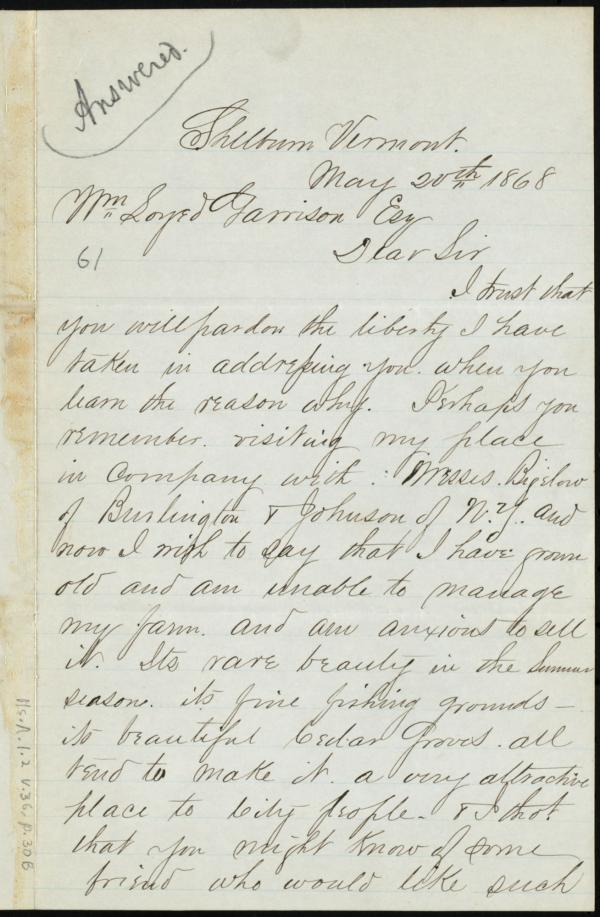 Answered.
Shelburn Vermont.
May 20th 1868
Wm Loyed Garrison Esq
61
Dear Sir
I trust that
you will pardon the liberty I have
taken in addressing you. when you
learn the reason why. Perhaps you
remember. visiting my place
in company with : Messes. Bigelow
of Burlington & Johnson of N.Y. and
now I wish to say that I have grown
old and am unable to manage
my farm. and am anxious to sell
it. Its rare beauty in the Summer
season. its fine fishing grounds –
its beautiful Cedar Groves. all
tend to make it. a very attractive
place to City people. & I thot
that you might know of some
friend who would like such
Ms.A.1.2 v.36, p.30B